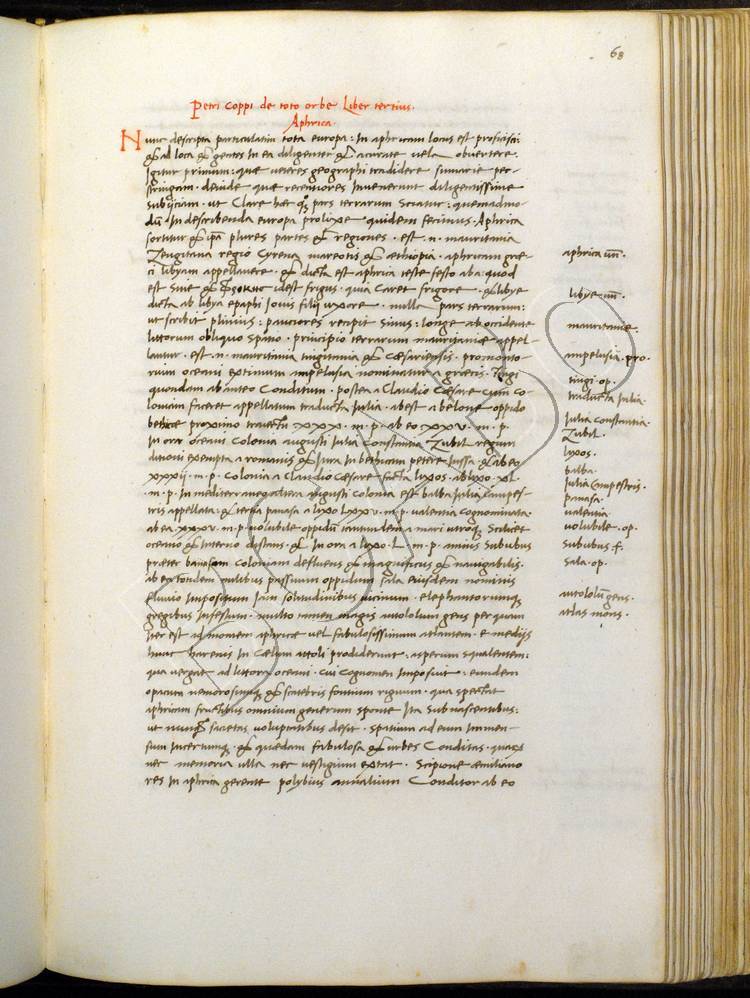 68
Petri Coppi de toto orbe Liber tertius.
Aphrica.
Nunc descripta particulatim tota europa: In aphricam locus est proficisci
& ad loca & gentes In ea diligenter & acurate vela obvertere.
Igitur primum: quæ veteres geographi tradidere sumarie per-
stringam. deinde quæ recentiores Invenerunt diligentissime
subijciam. ut Clare hæc quoq pars terrarum sciatur: quemadmo-
dū In describenda europa prolixe quidem fecimus. Aphrica
sortitur & ipa plures partes & regiones. est .n. mauritania
Zengitana regio Cyrena mareotis & æthiopia. aphricam græ-
ci libyam appellavere. & dicta est aphrica teste festo aba quod
est sine & idest frigus. quia Caret frigore. & libye
dicta ab libya epaphi Jovis filij uxore. nulla pars terrarum:
ut scribit plinius: pauciores recipit sinus: longe ab occidente
littorum obliquo spatio. principio terrarum mauritaniæ appel-
lantur. est .n. mauritania tingitania & Cæsariensis. promonto-
rium oceani extimum ampelusia nominatur a græcis. Tingi
quondam ab anteo Conditum. postea a Claudio Cæsare cum co-
loniam faceret appellatum traducta Julia. abest a belone oppido
beticæ proximo traiectu xxxi. m. p. ab eo xxxv. m. p.
In ora oceani Colonia augusti Julia Constantia Zubil regum
ditioni exempta a romanis & Jura In bethicam petere Jussa & ab eo
xxxij. m. p. Colonia a Claudio Cæsare facta lixos. ab lixo .xl.
.m. p. In mediterraneo altera augusti Colonia est balba Julia Campes-
tris appellata: & tertia panasa a lixo lxxv. m. p. valentia cognominata.
ab ea xxxv. m. p. volubile oppidū tantundem a mari utroq. scilicet
oceano & Interno distans. & In ora a lixo .L. m. p. amnis Sububus
præter banasam Coloniam defluens & magnificus & navigabilis.
ab eo totidem milibus passuum oppidum sala eiusdem nominis
fluvio Impositum Jam solitudinibus vicinum. elephantorumq
gregibus Infestum. multo tamen magis autololum gens per quam
Iter est ad montem aphricæ vel fabulosissimum atlantem. e medijs
hunc harenis In Cælum attoli prodiderunt. asperum squalentem:
qua vergat ad littora oceani. cui cognomen Imposuit: eundem
opacum nemorosumq & scatebris fontium riguum. qua spectat
aphricam fructibus omnium generum sponte Ita Sub nascentibus:
ut nunq sacietas voluptatibus desit. spatium ad eum Immen-
sum Incertumq. & quædam fabulosa & urbes Conditas quaꝝ
nec memoria ulla nec vestigium extat. Scipione æmiliano
res In aphrica gerente polybius annalium Conditor ab eo
aphrica un̄.
libye un̄.
mauritaniæ.
ampelusia. pro.
tingi. op.
traducta Julia.
Julia Constantia.
Zubil.
lixos.
balba.
Julia Campestris.
panasa.
valentia.
volubile. op.
Sububus. f.
Sala. op.
autololū gens.
atlas mons.